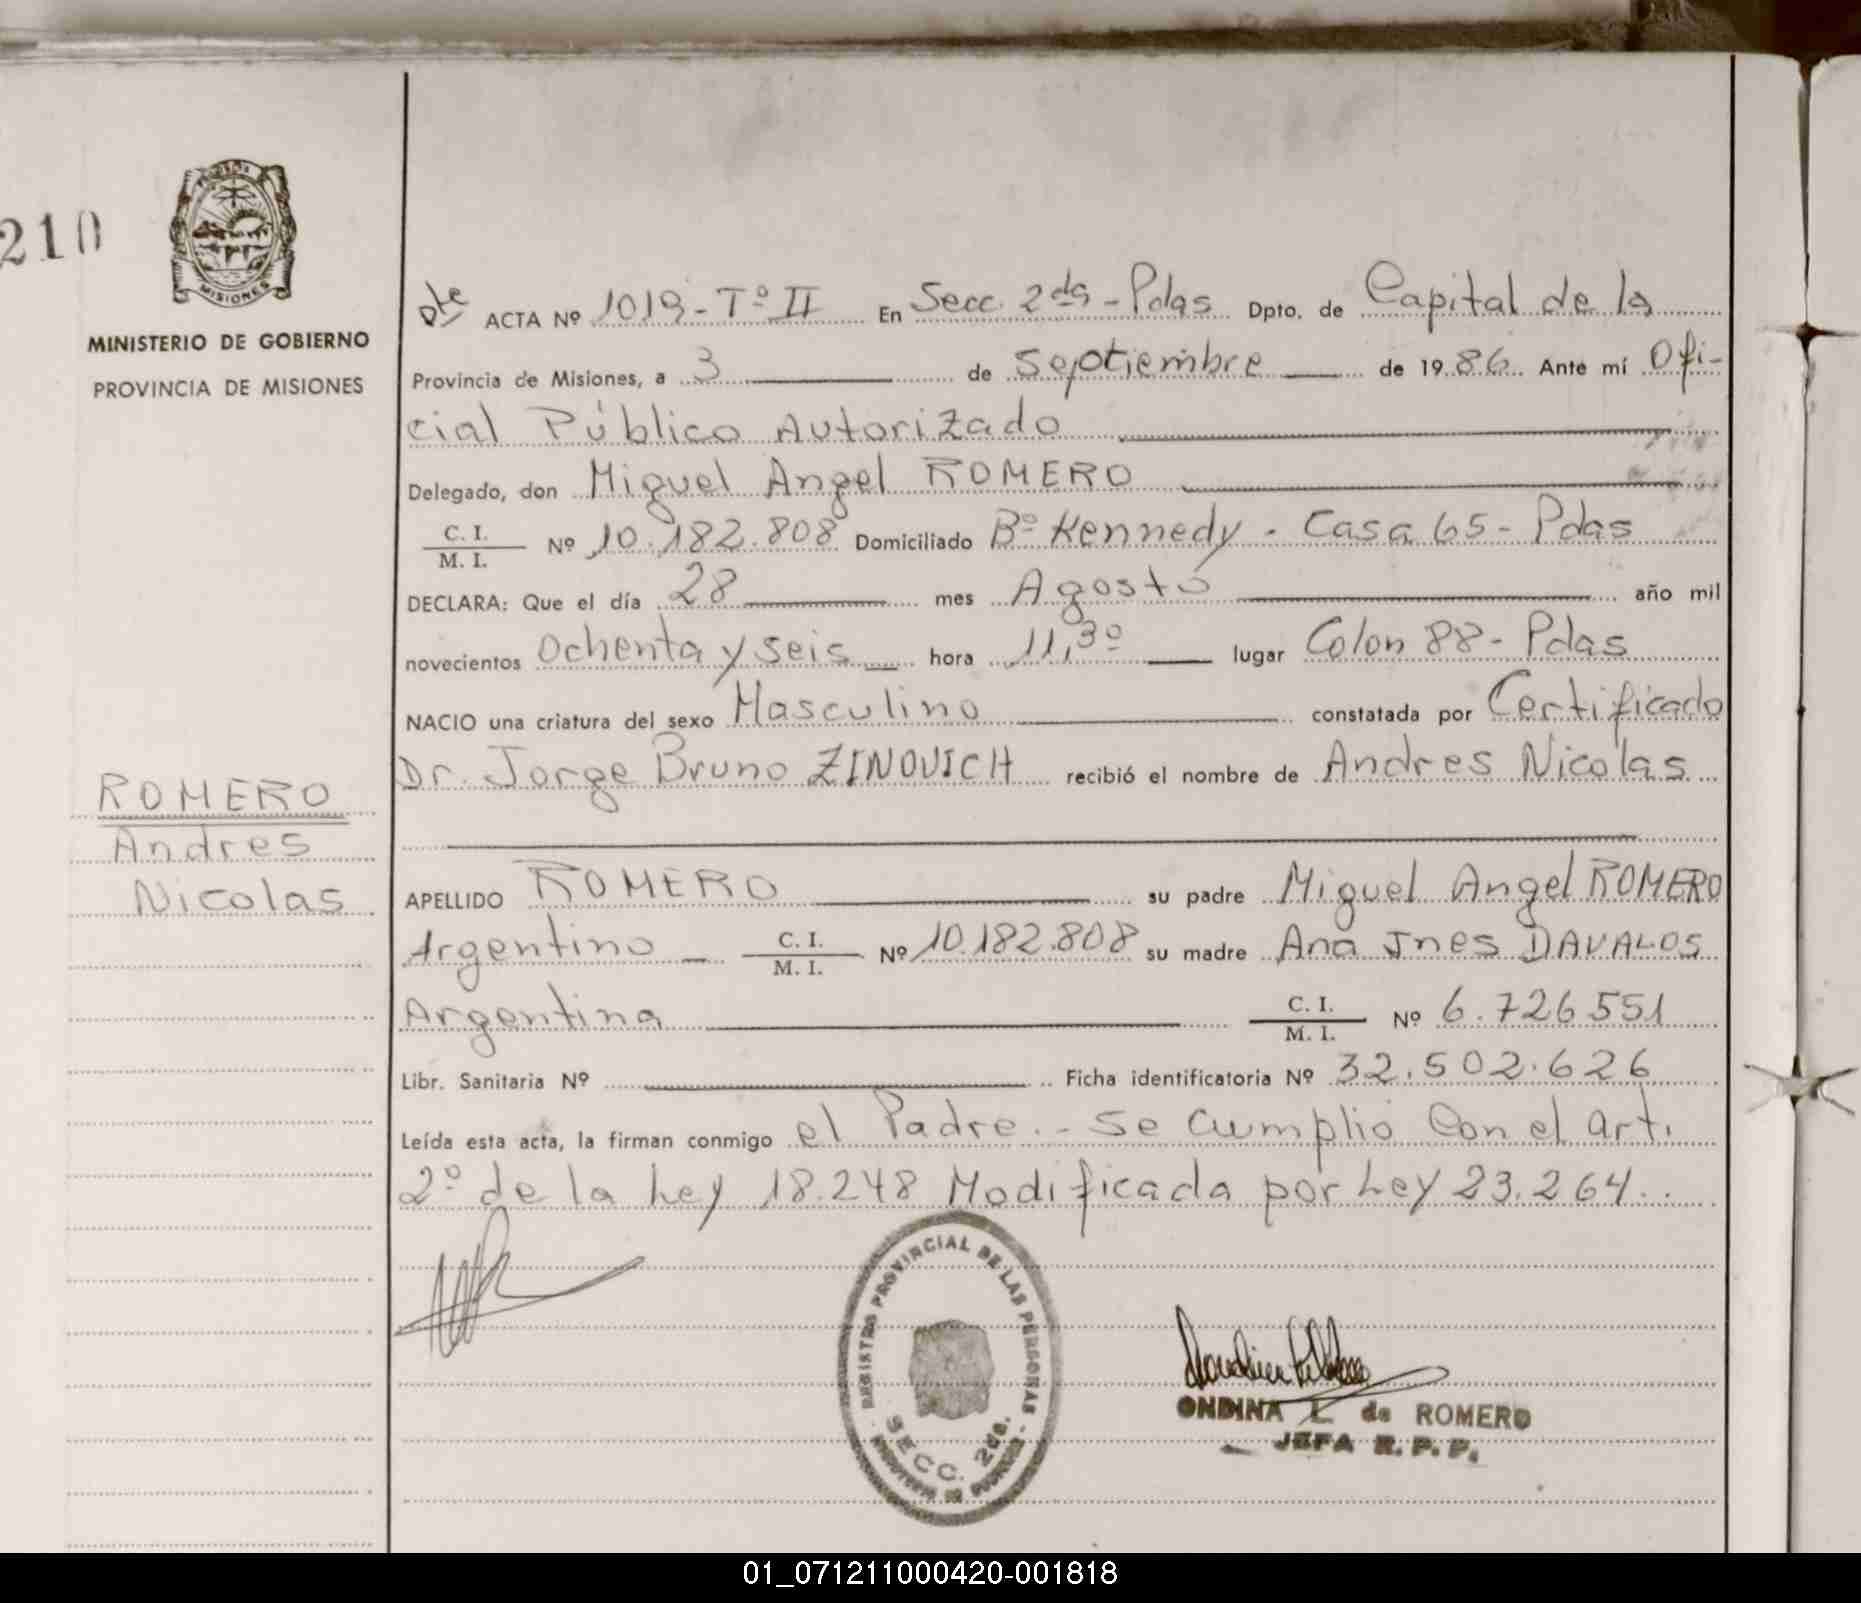 210
MISIONES
MINISTERIO DE GOBIERNO
PROVINCIA DE MISIONES
ROMERO
Andres
Nicolas
Dte ACTA Nº 1019-Tº II En Secc. 2da - Pdas Dpto. de Capital de la
Provincia de Misiones, a 3 de Septiembre de 1986 Ante mí Ofi-
cial Público Autorizado
Delegado, don Miguel Angel ROMERO
C. I.
M. I. Nº 10.182.808 Domiciliado Bº Kennedy - Casa 65 - Pdas
DECLARA: Que el día 28 mes Agosto año mil
novecientos Ochenta y seis hora 11,30 lugar Colon 88 - Pdas
NACIO una criatura del sexo Masculino constatada por Certificado
Dr. Jorge Bruno ZINOVICH recibió el nombre de Andres Nicolas
APELLIDO ROMERO su padre Miguel Angel ROMERO
Argentino C. I.
M. I. Nº 10.182.808 su madre Ana Ines DAVALOS
Argentina C. I.
M. I. Nº 6.726.551
Libr. Sanitaria Nº Ficha identificatoria Nº 32.502.626
Leída esta acta, la firman conmigo el Padre.- Se Cumplio Con el art.
2º de la Ley 18.248 Modificada por Ley 23.264.
REGISTRO PROVINCIAL DE LAS PERSONAS
SECC. 2da.
ONDINA L. de ROMERO
JEFA R. P. P.
01_071211000420-001818